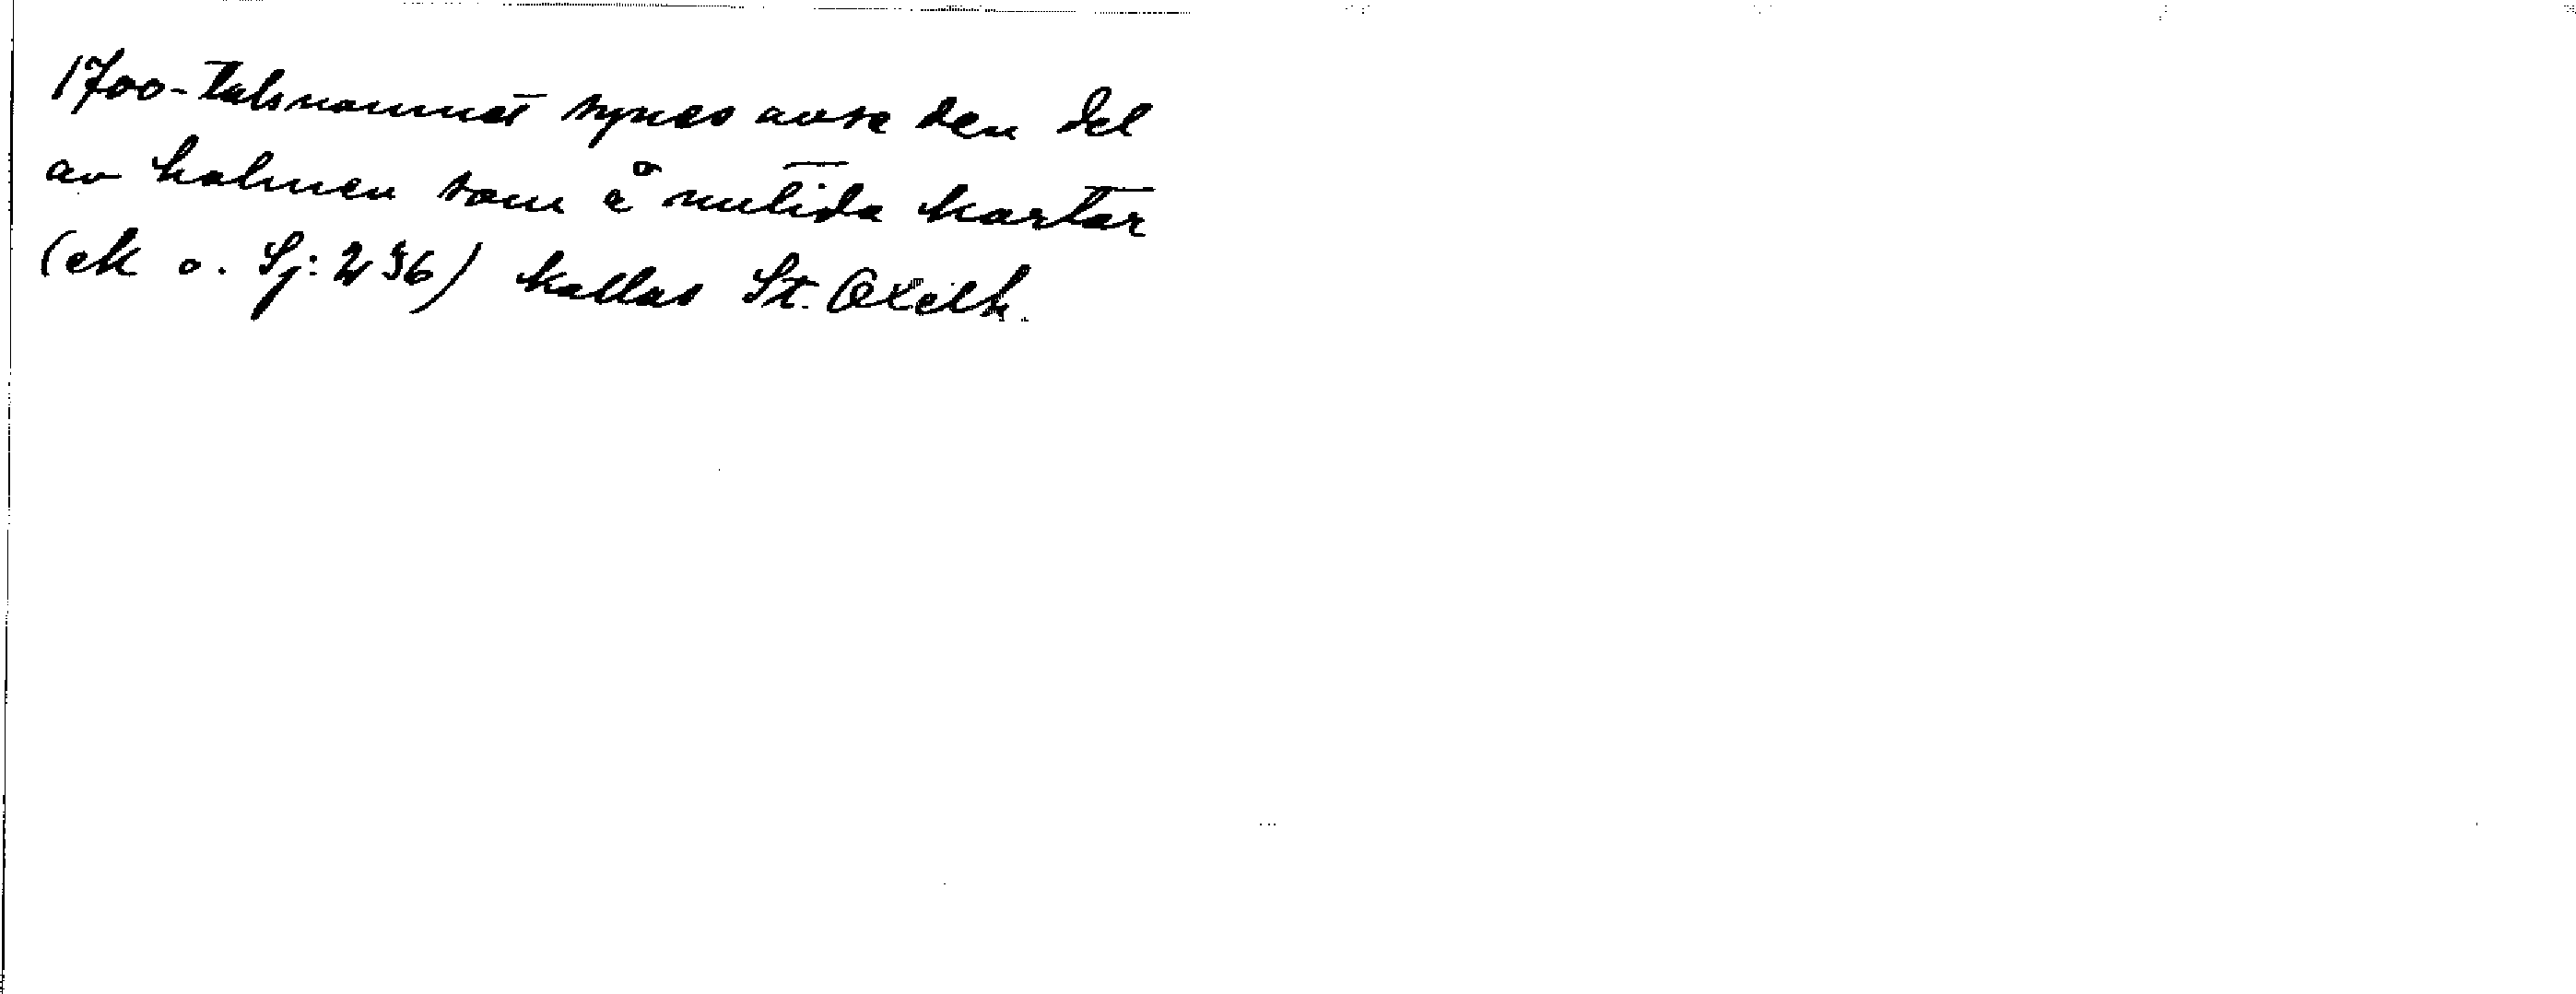 1700-talsnamnet synes avse den del
av holmen som å nutida kartar
(ek o. Sj: 236) kallas St. Oxelh.